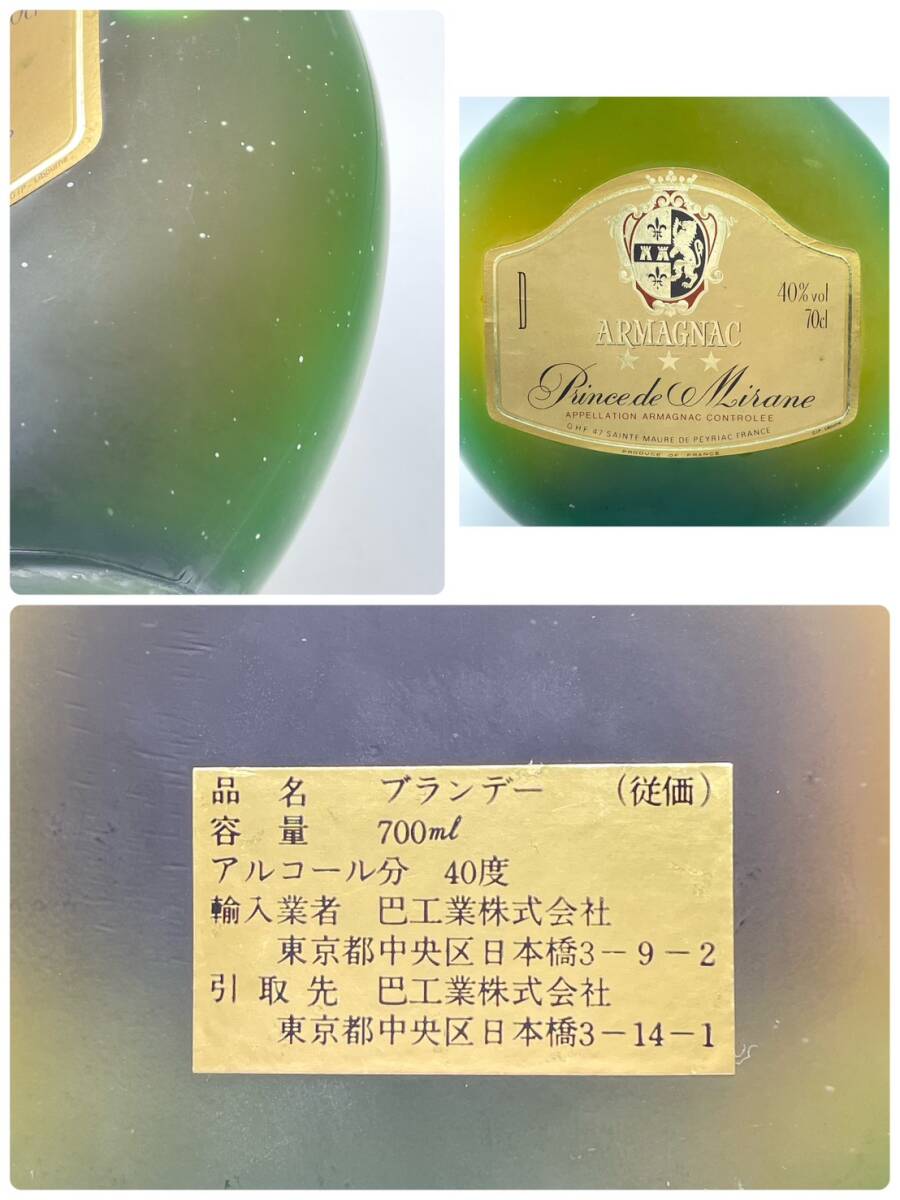 D
40% vol
70cl
ARMAGNAC
Prince de Mirane
APPELLATION ARMAGNAC CONTROLEE
GHF 47 SAINTE MAURE DE PEYRIAC FRANCE
PRODUCE OF FRANCE
品名 ブランデー (従価)
容量 700ml
アルコール分 40度
輸入業者 巴工業株式会社
東京都中央区日本橋3-9-2
引取先 巴工業株式会社
東京都中央区日本橋3-14-1